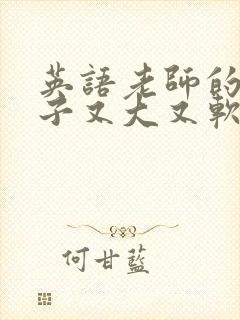 英語老師的
子又大又軟
何甘藍